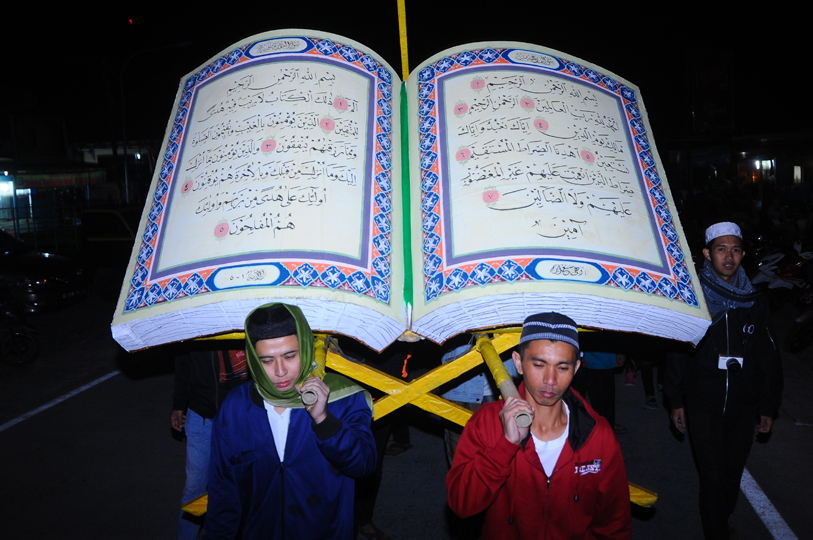 بِسْمِ اللهِ الرَّحْمٰنِ الرَّحِيْمِ ١
الْحَمْدُ لِلّٰهِ رَبِّ الْعَالَمِيْنَ ٢ الرَّحْمٰنِ الرَّحِيْمِ ٣
مَالِكِ يَوْمِ الدِّيْنِ ٤ اِيَّاكَ نَعْبُدُ وَاِيَّاكَ
نَسْتَعِيْنُ ٥ اِهْدِنَا الصِّرَاطَ الْمُسْتَقِيْمَ ٦
صِرَاطَ الَّذِيْنَ اَنْعَمْتَ عَلَيْهِمْ غَيْرِ الْمَغْضُوْبِ
عَلَيْهِمْ وَلَا الضَّالِّيْنَ ٧
آمِيْن
بِسْمِ اللهِ الرَّحْمٰنِ الرَّحِيْمِ
الٓمٓ ١ ذٰلِكَ الْكِتَابُ لَا رَيْبَ فِيْهِ هُدًى
لِلْمُتَّقِيْنَ ٢ الَّذِيْنَ يُؤْمِنُوْنَ بِالْغَيْبِ وَيُقِيْمُوْنَ الصَّلَاةَ
وَمِمَّا رَزَقْنَاهُمْ يُنْفِقُوْنَ ٣ وَالَّذِيْنَ يُؤْمِنُوْنَ بِمَا اُنْزِلَ
اِلَيْكَ وَمَا اُنْزِلَ مِنْ قَبْلِكَ وَبِالْاٰخِرَةِ هُمْ يُوْقِنُوْنَ ٤
اُولٰئِكَ عَلٰى هُدًى مِنْ رَبِّهِمْ وَاُولٰئِكَ
هُمُ الْمُفْلِحُوْنَ ٥
الآية ١-٥